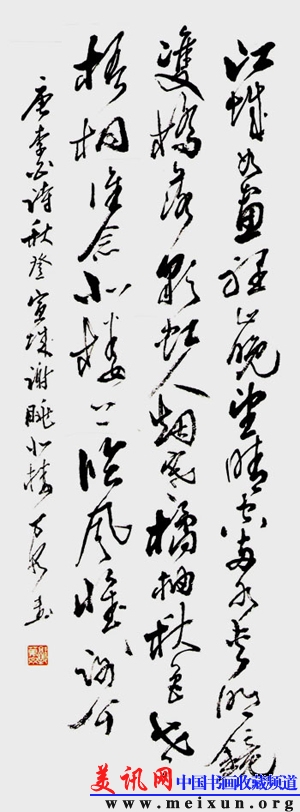 江城如畫裡山晚望晴空兩水夾明鏡
雙橋落彩虹人烟寒橘柚秋色老
梧桐谁念北楼上临风懷謝公
唐李白詩秋登宣城謝眺北楼
美讯网
中国书画收藏频道
www.meixun.org